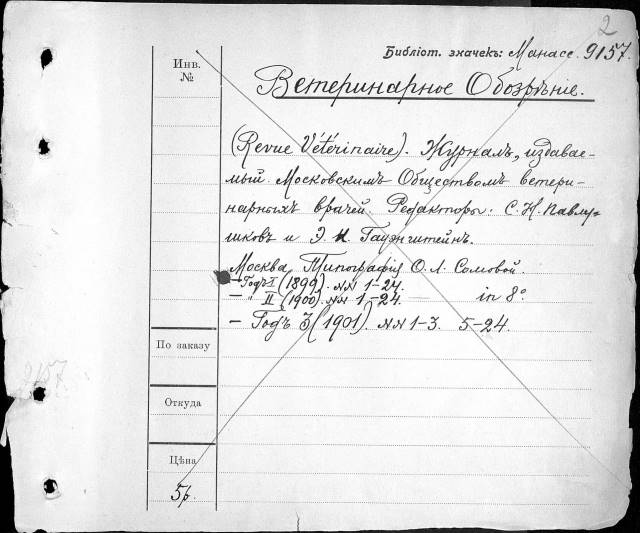 2
Библіот. значекъ: Манасс. 9157.
Инв.
№
Ветеринарное Обозрѣніе.
(Revue Vétérinaire). Журналъ, издавае-
мый Московскимъ Обществомъ ветери-
нарныхъ врачей. Редакторы: С. Н. Павлу-
шковъ и Э. К. Гауэнштейнъ.
Москва. Типографія О. Л. Сомовой.
– Годъ I (1899). NN 1–24.
– " II (1900). NN 1–24. in 8°
– Годъ 3 (1901). NN 1–3. 5–24.
По заказу
Откуда
Цѣна
5р.
9157